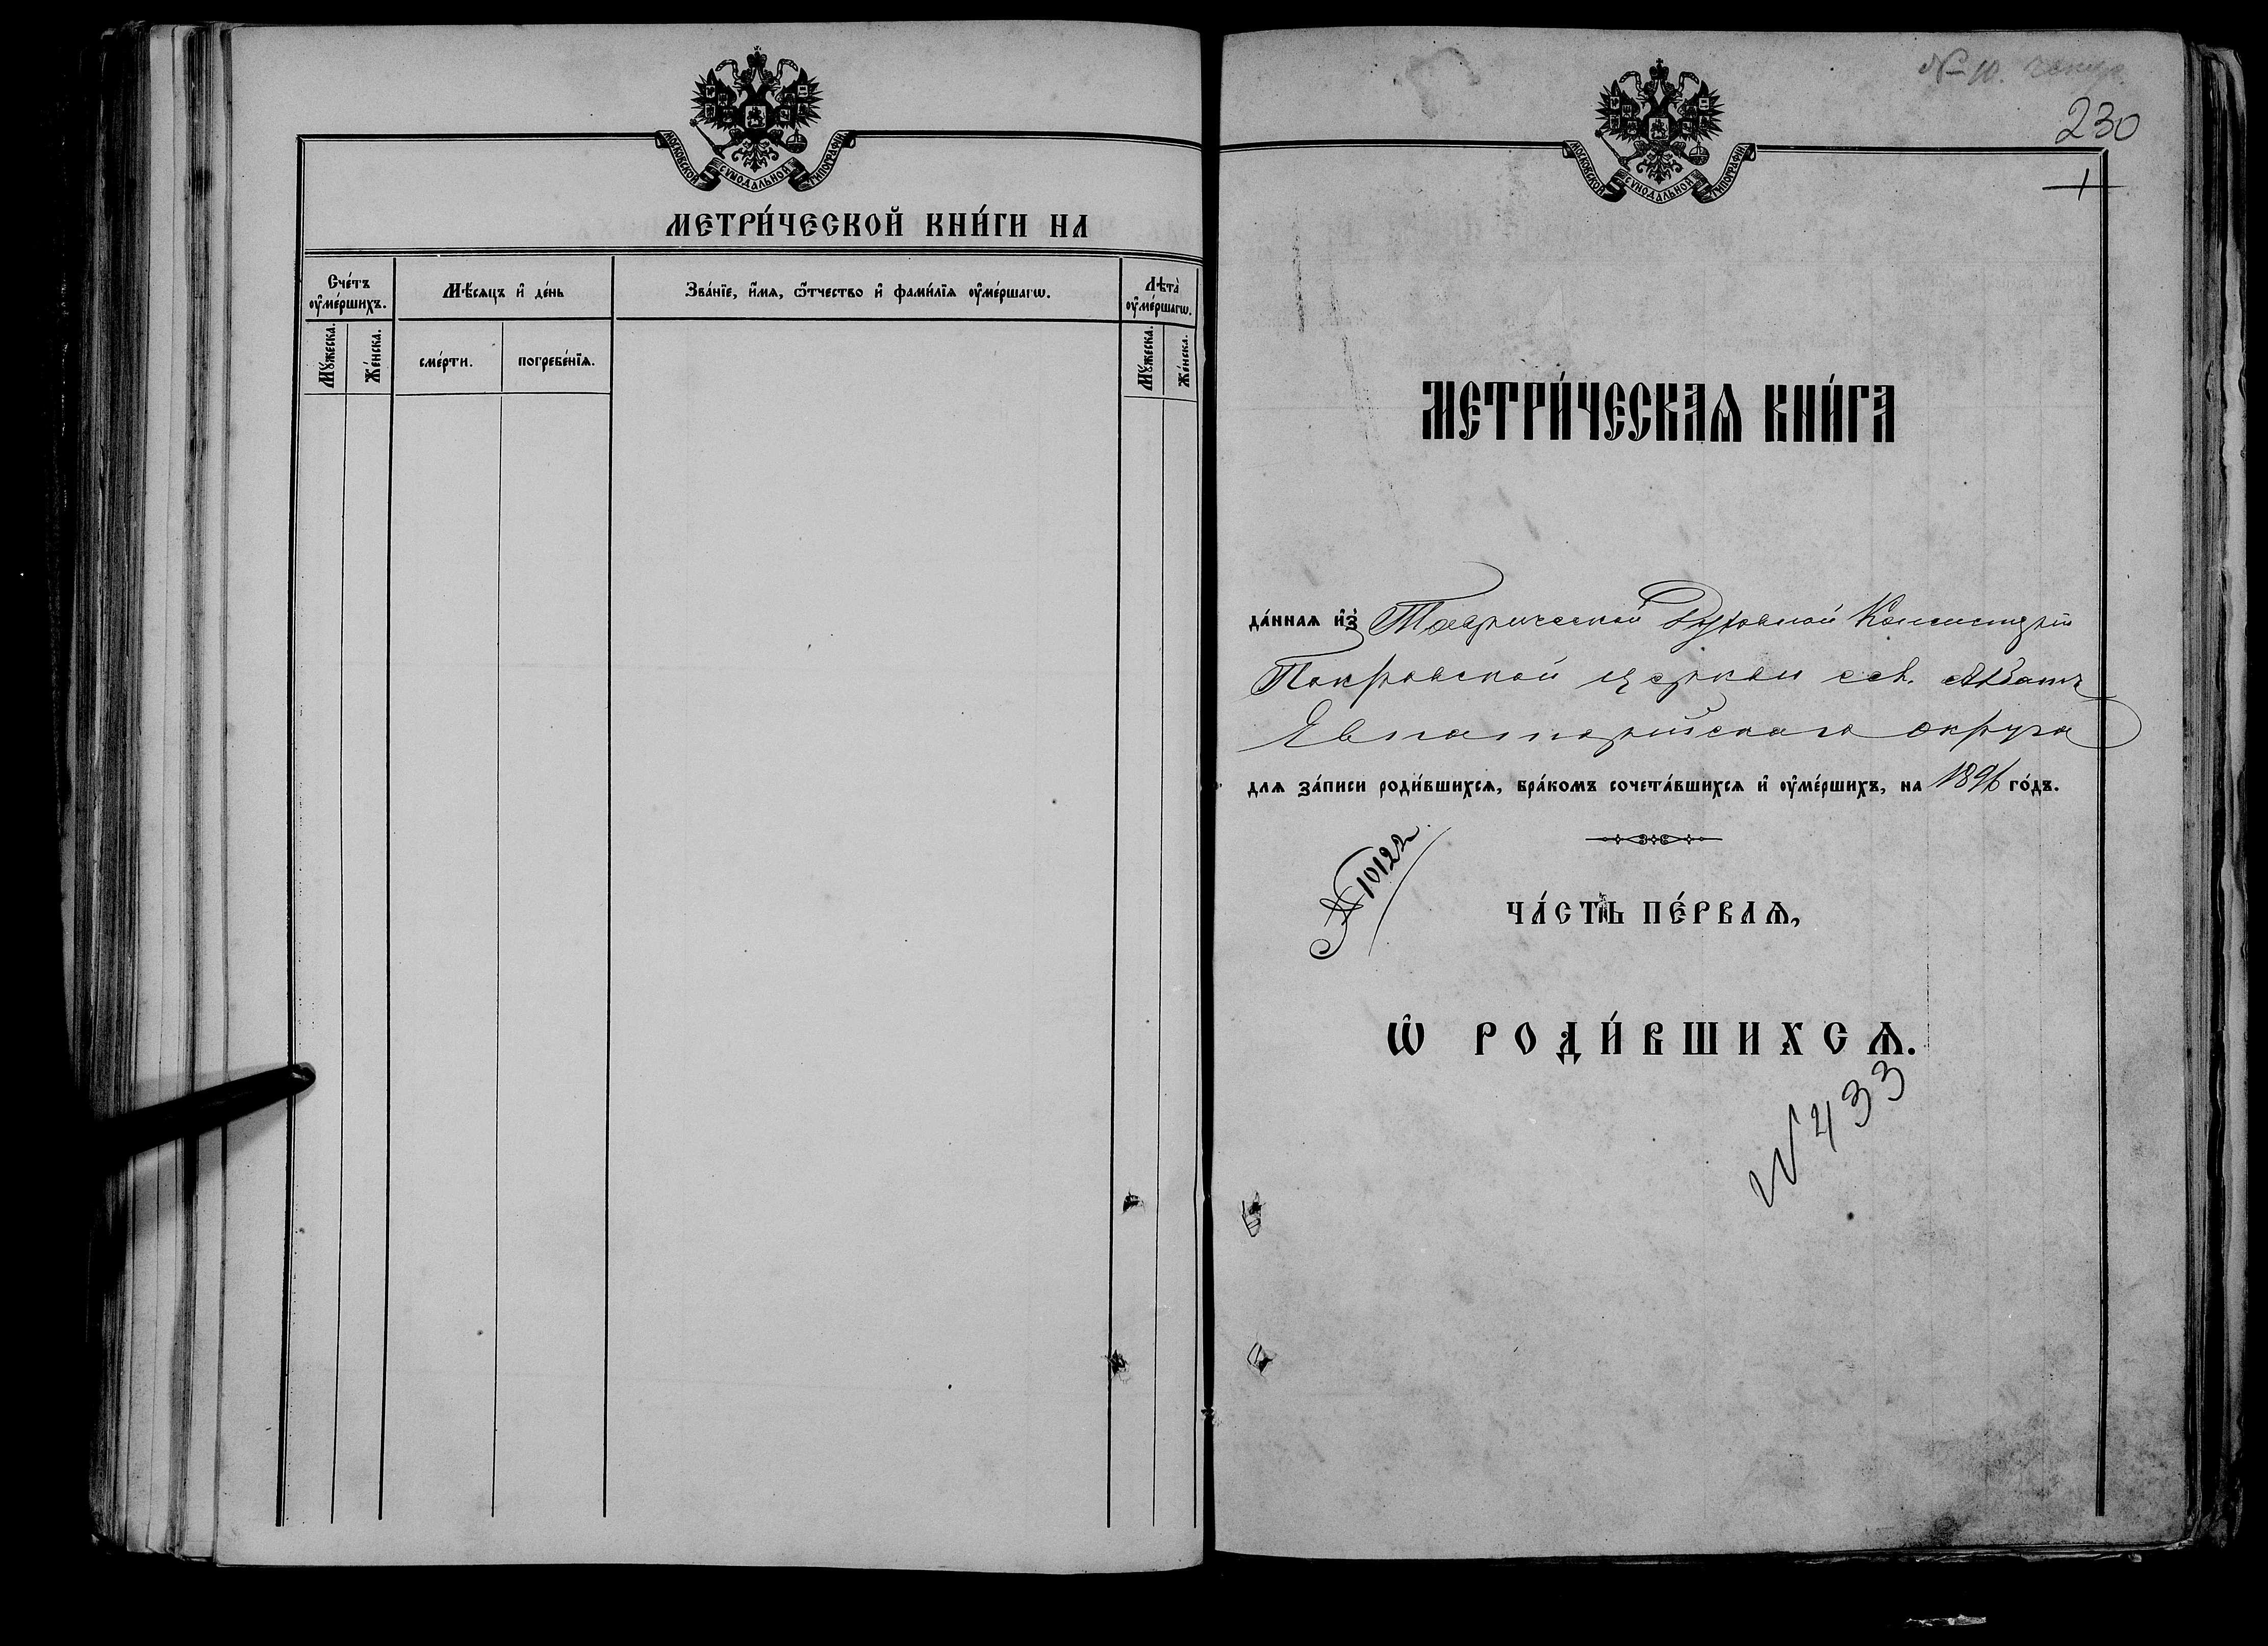 МОСКОВСКОЙ СѴНОДАЛЬНОЙ ТИПОГРАФІИ
МЕТРИ́ЧЕСКОЙ КНИ́ГИ НА
Сче́тъ ᲂу҆ме́ршихъ.
Мѣ́сяцъ и҆ де́нь
Зва́нїе, и҆́мѧ, ѻ҆́тчество и҆ фами́лїѧ ᲂу҆ме́ршагѡ.
Лѣта̀ ᲂу҆ме́ршагѡ.
Мꙋ́жеска.
Же́нска.
сме́рти.
погребе́нїѧ.
Мꙋ́жеска.
Же́нска.
№ 10.
230
МОСКОВСКОЙ СѴНОДАЛЬНОЙ ТИПОГРАФІИ
1
МЕТРИ́ЧЕСКАѦ КНИ́ГА
да́ннаѧ и҆з̾ Таврической Духовной Консисторіи
Покровской церкви сел. Акбашъ
Евпаторійскаго округа
длѧ за́писи роди́вшихсѧ, бра́комъ сочета́вшихсѧ и҆ ᲂу҆ме́ршихъ, на 1896 го́дъ.
№ 10122
ЧА́СТЬ ПЕ́РВАѦ,
Ѡ҆ РОДИ́ВШИХСѦ.
N 433